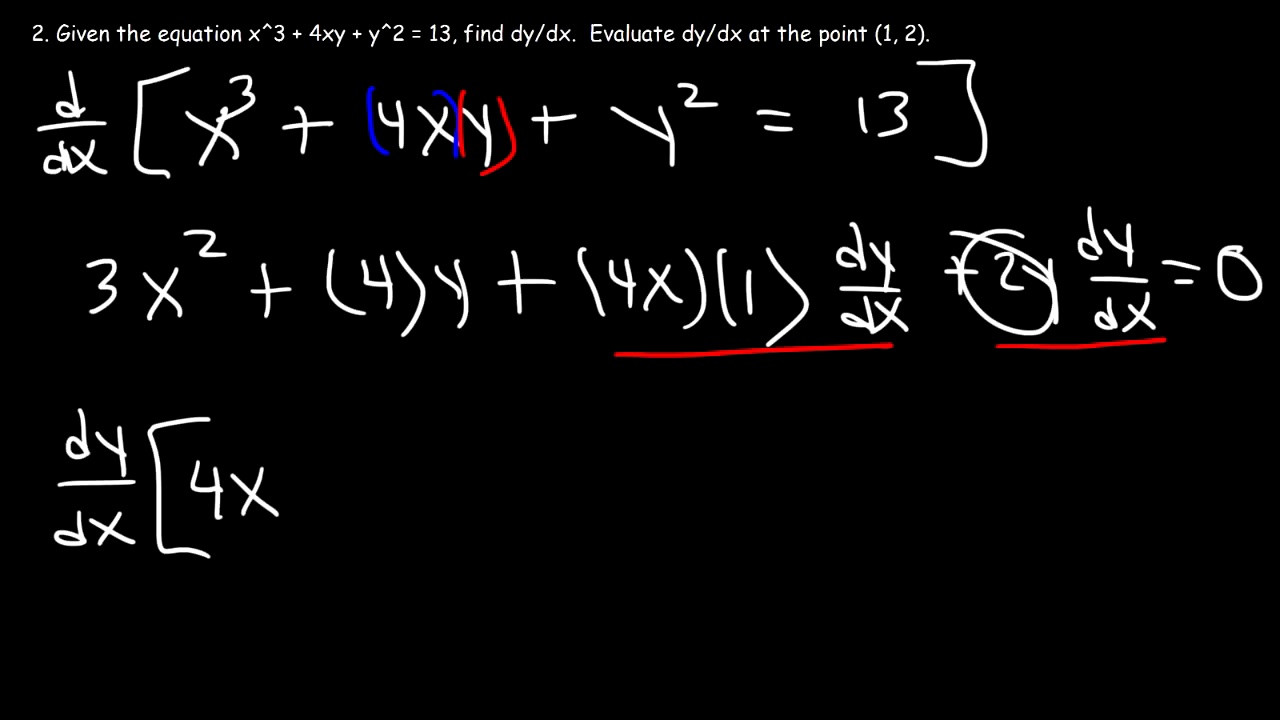 2. Given the equation x^3 + 4xy + y^2 = 13, find dy/dx. Evaluate dy/dx at the point (1, 2).
d/dx [x³ + (4x)(y) + y² = 13]
3x² + (4)y + (4x)(1) dy/dx + 2y dy/dx = 0
dy/dx [4x